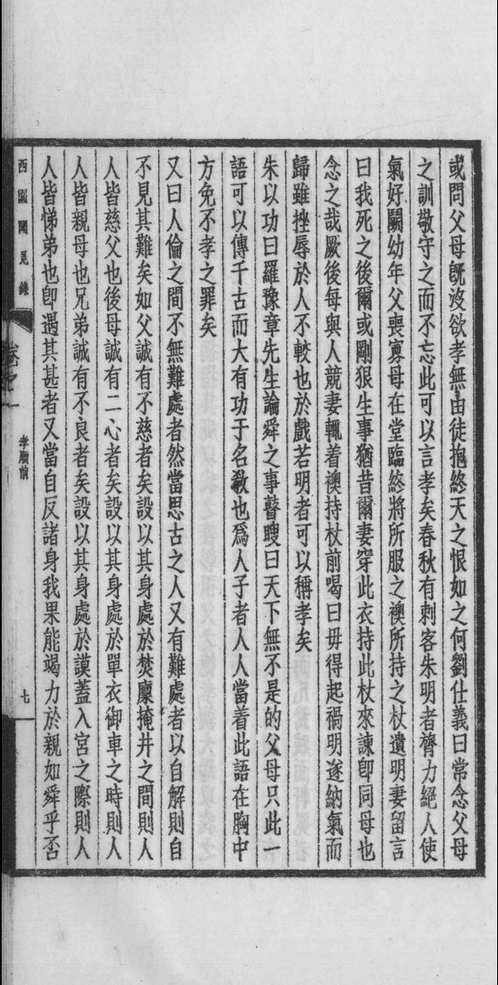 或問父母旣沒欲孝無由徒抱終天之恨如之何劉仕義曰常念父母
之訓敬守之而不忘此可以言孝矣春秋有刺客朱明者膂力絕人使
氣好鬭幼年父喪寡母在堂臨終將所服之襖所持之杖遺明妻留言
曰我死之後爾或剛狠生事猶昔爾妻穿此衣持此杖來諫卽同母也
念之哉厥後每與人競妻輒着襖持杖前喝曰毋得起禍明遂納氣而
歸雖挫辱於人不較也於戲若明者可以稱孝矣
朱以功曰羅豫章先生論舜之事瞽瞍曰天下無不是的父母只此一
語可以傳千古而大有功于名敎也爲人子者人人當着此語在胸中
方免不孝之罪矣
又曰人倫之間不無難處者然當思古之人又有難處者以自解則自
不見其難矣如父誠有不慈者矣設以其身處於焚廩掩井之間則人
人皆慈父也後母誠有二心者矣設以其身處於單衣御車之時則人
人皆親母也兄弟誠有不良者矣設以其身處於謨蓋入宮之際則人
人皆悌弟也卽遇其甚者又當自反諸身我果能竭力於親如舜乎否
西園聞見錄
孝順前
七